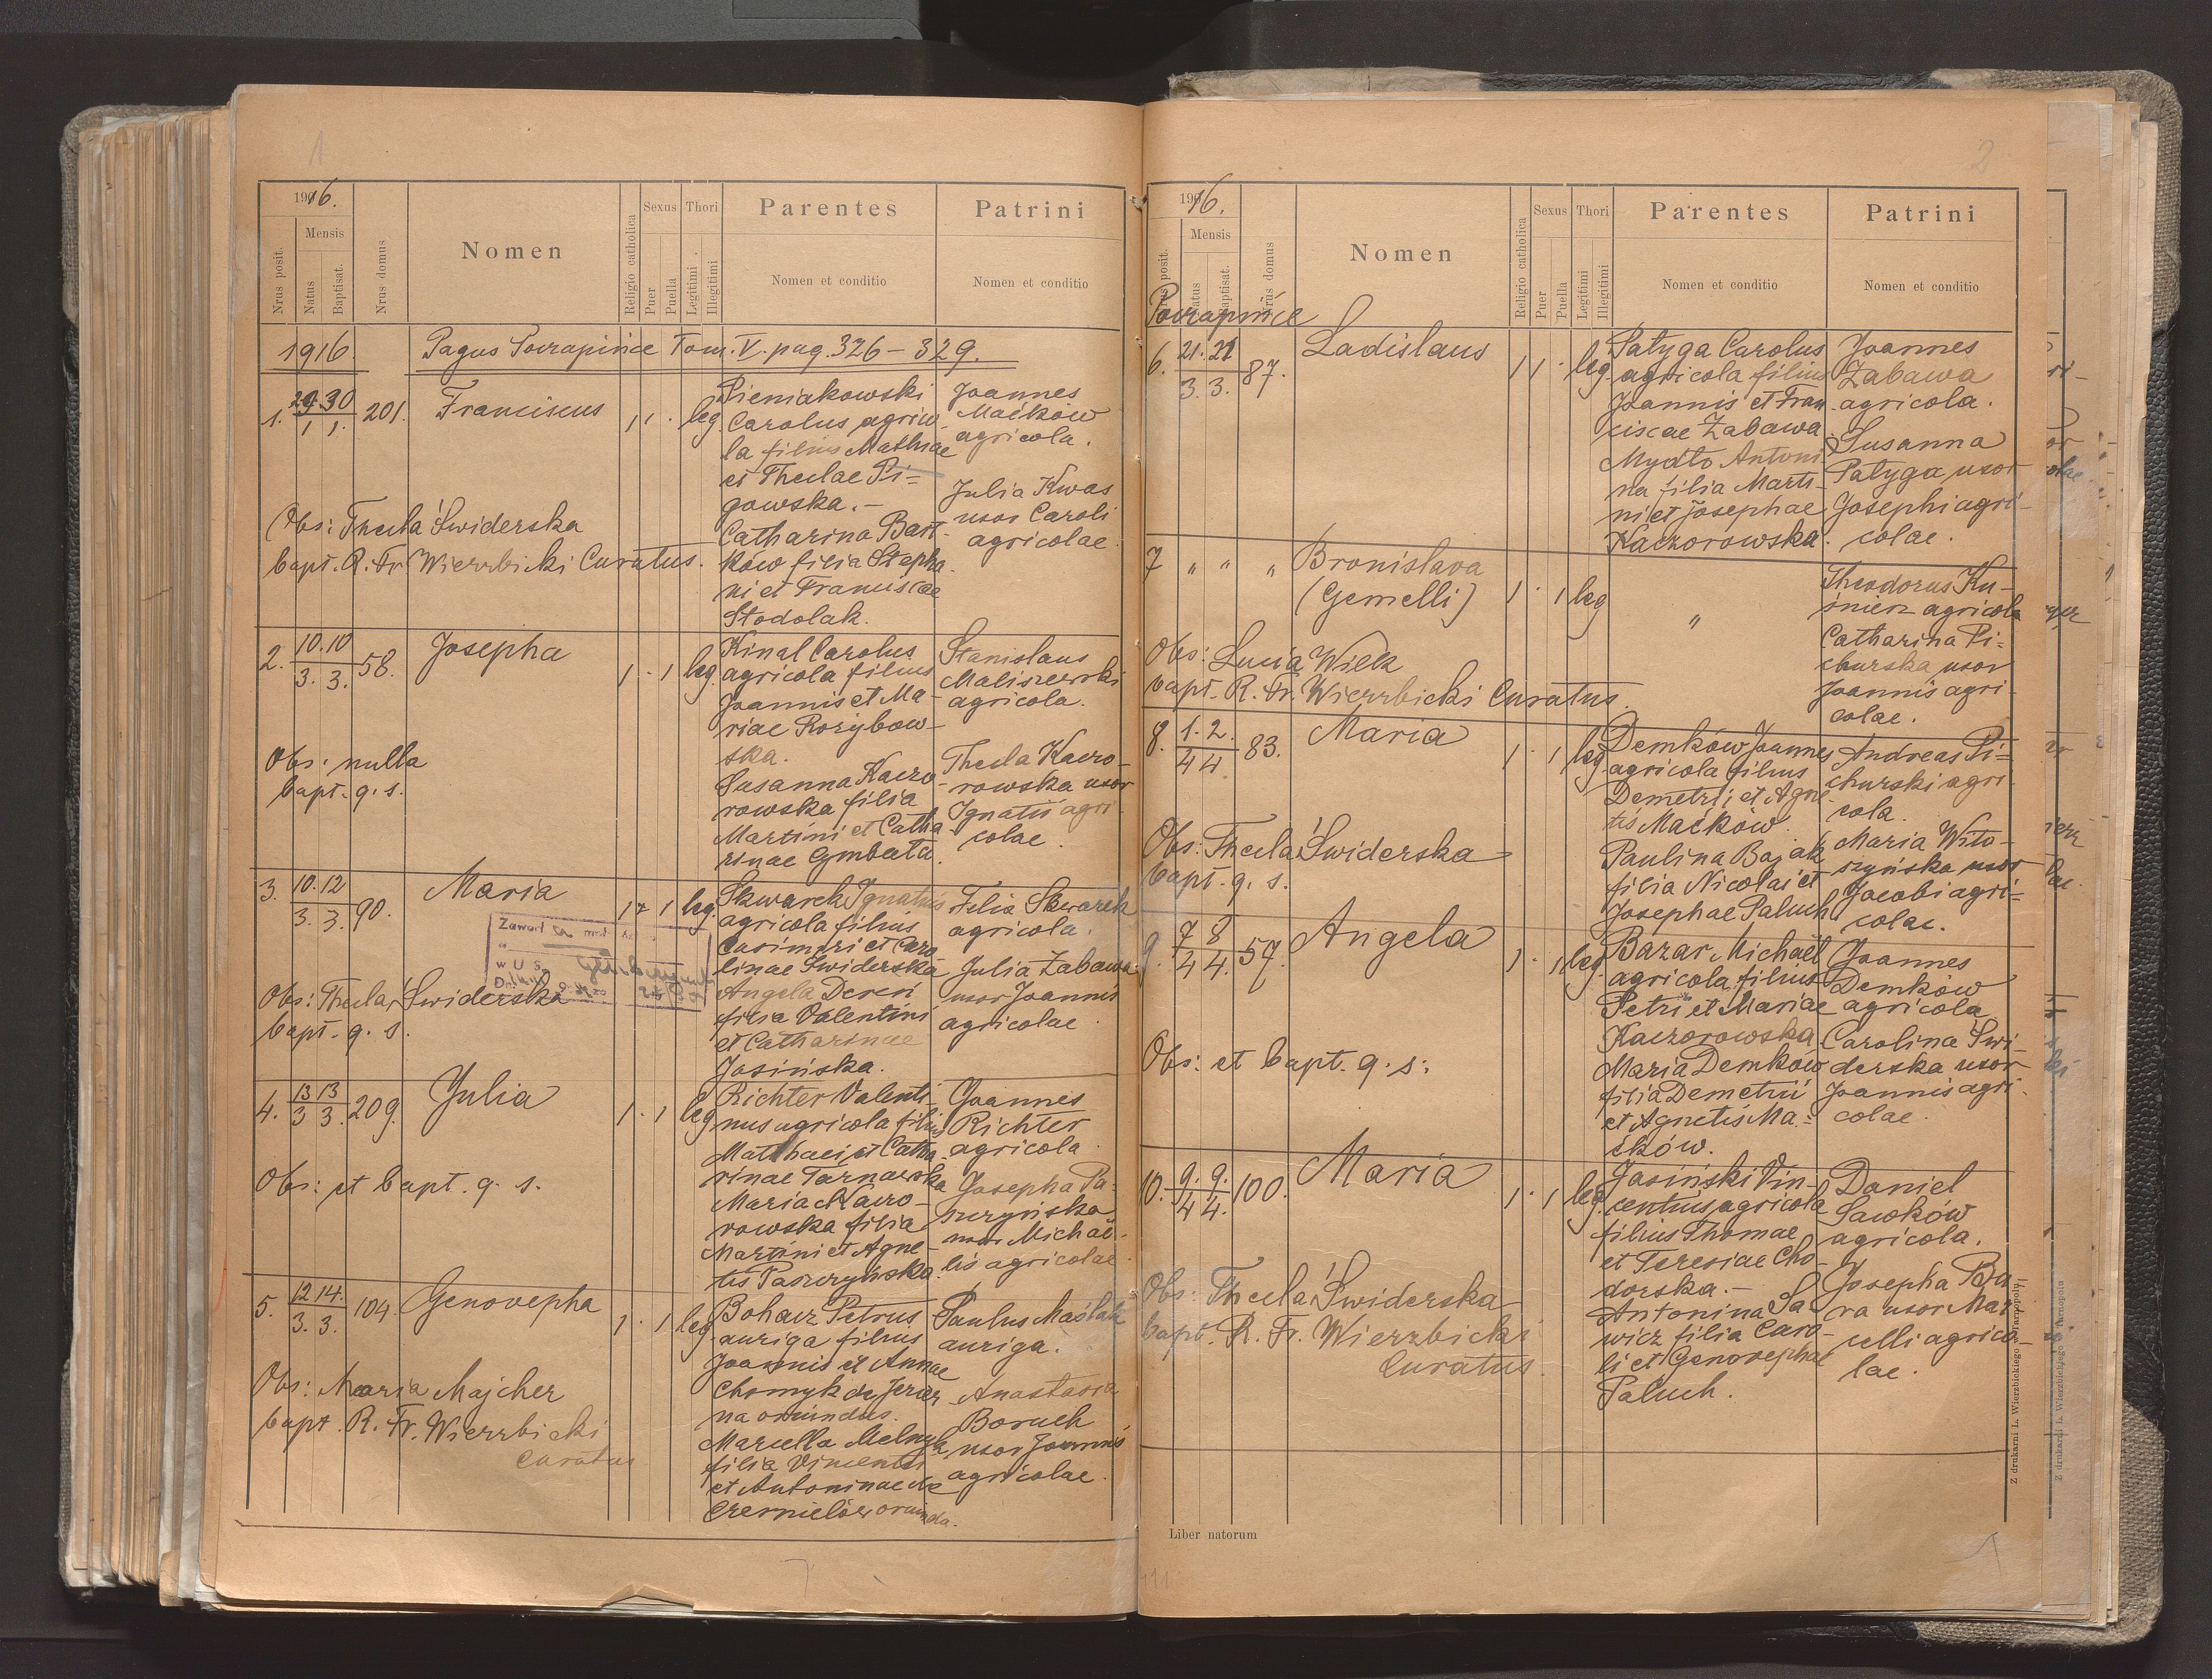 1
1916.
Nrus posit.
Mensis
Natus
Baptisat.
Nrus domus
Nomen
Religio catholica
Sexus
Puer
Puella
Thori
Legitimi
Illegitimi
Parentes
Nomen et conditio
Patrini
Nomen et conditio
1916.
Pagus Poczapińce Tom. V. pag. 326-329.
1.
29. 30
1 1.
201.
Franciscus
1 1 .
leg.
Pieniakowski
Carolus agrico-
la filius Mathiae
et Theclae Pi=
gowska.-
Catharina Bart-
ków filia Stepha-
ni et Franciscae
Stodolak.
Joannes
Maćków
agricola.
Julia Kwas
uxor Caroli
agricolae.
Obs: Thecla Świderska
bapt. R. Fr. Wierzbicki Curatus.
2.
10. 10
3. 3.
58.
Josepha
1 . 1
leg.
Kinal Carolus
agricola filius
Joannis et Ma-
riae Rozybow-
ska.
Susanna Kaczo-
rowska filia
Martini et Catha-
rinae Gombata.
Stanislaus
Maliszewski
agricola.
Thecla Kaczo-
rowska uxor
Ignatii agri-
colae.
Obs: nulla
bapt. q. s.
3.
10. 12
3. 3.
90.
Maria
1 . 1
leg.
Skwarek Ignatius
agricola filius
Casimiri et Caro-
linae Świderska
Angela Dereń
filia Valentini
et Catharinae
Jasińska.
Felix Skwarek
agricola.
Julia Zabawa
uxor Joannis
agricolae.
Zawarł a
w U S
Obs: Thecla Świderska
bapt. q. s.
4.
13 13
3 3.
209.
Julia
1 . 1
leg
Richter Valenti-
nus agricola filius
Matthaei et Catha-
rinae Tarnawska
Maria Kaczo-
rowska filia
Martini et Agne-
tis Paszczyńska.
Joannes
Richter
agricola.
Josepha Pa-
szczyńska
uxor Michaë-
lis agricolae.
Obs: et bapt. q. s.
5.
12 14.
3. 3.
104.
Genovepha
1 . 1
leg.
Bohacz Petrus
auriga filius
Joannis et Annae
Chomyk de Jezier
na oriundus.
Marcella Melnyk
filia Vincentii
et Antoninae de
Czernielów oriunda.
Paulus Maślak
auriga.
Anastasia
Boruch
uxor Joannis
agricolae.
Obs: Maria Majcher
bapt. R. Fr. Wierzbicki
Curatus
2
1916.
Nrus posit.
Mensis
Natus
Baptisat.
Nrus domus
Nomen
Religio catholica
Sexus
Puer
Puella
Thori
Legitimi
Illegitimi
Parentes
Nomen et conditio
Patrini
Nomen et conditio
Poczapińce
6.
21. 21
3. 3.
87.
Ladislaus
1 1 .
leg.
Patyga Carolus
agricola filius
Joannis et Fran-
ciscae Zabawa
Mydło Antoni-
na filia Marti-
ni et Josephae
Kaczorowska.
Joannes
Zabawa
agricola.
Susanna
Patyga uxor
Josephi agri-
colae.
7
" " "
Bronislava
(Gemelli)
1 . 1
leg
"
Theodorus Ku-
śnierz agricola
Catharina Pi-
churska uxor
Joannis agri-
colae.
Obs: Lucia Wilk
bapt. R. Fr. Wierzbicki Curatus.
8.
1. 2.
4 4.
83.
Maria
1 . 1
leg.
Demków Joannes
agricola filius
Demetrii et Agne-
tis Maćków.
Paulina Bajak
filia Nicolai et
Josephae Paluch
Andreas Pi=
churski agri-
cola.
Maria Wito-
szyńska uxor
Jacobi agri=
colae.
Obs: Thecla Świderska
bapt. q. s.
9.
7 8
4 4.
57.
Angela
1 . 1
leg.
Bazar Michaël
agricola filius
Petri et Mariae
Kaczorowska
Maria Demków
filia Demetrii
et Agnetis Ma=
ćków.
Joannes
Demków
agricola
Carolina Świ-
derska uxor
Joannis agri-
colae.
Obs: et bapt. q. s:
10.
9. 9.
4 4.
100.
Maria
1 . 1
leg.
Jasiński Vin-
centius agricola
filius Thomae
et Teresiae Cho-
dorska.-
Antonina Sa-
wicz filia Caro-
li et Genovephae
Paluch.
Daniel
Sawków
agricola.
Josepha Ba-
ra uxor Mar-
celli agrico-
lae.
Obs: Thecla Świderska
bapt. R. Fr. Wierzbicki
Curatus.
Liber natorum
Z drukarni L. Wierzbickiego w Tarnopolu
Z drukarni L. Wierzbickiego w Tarnopolu